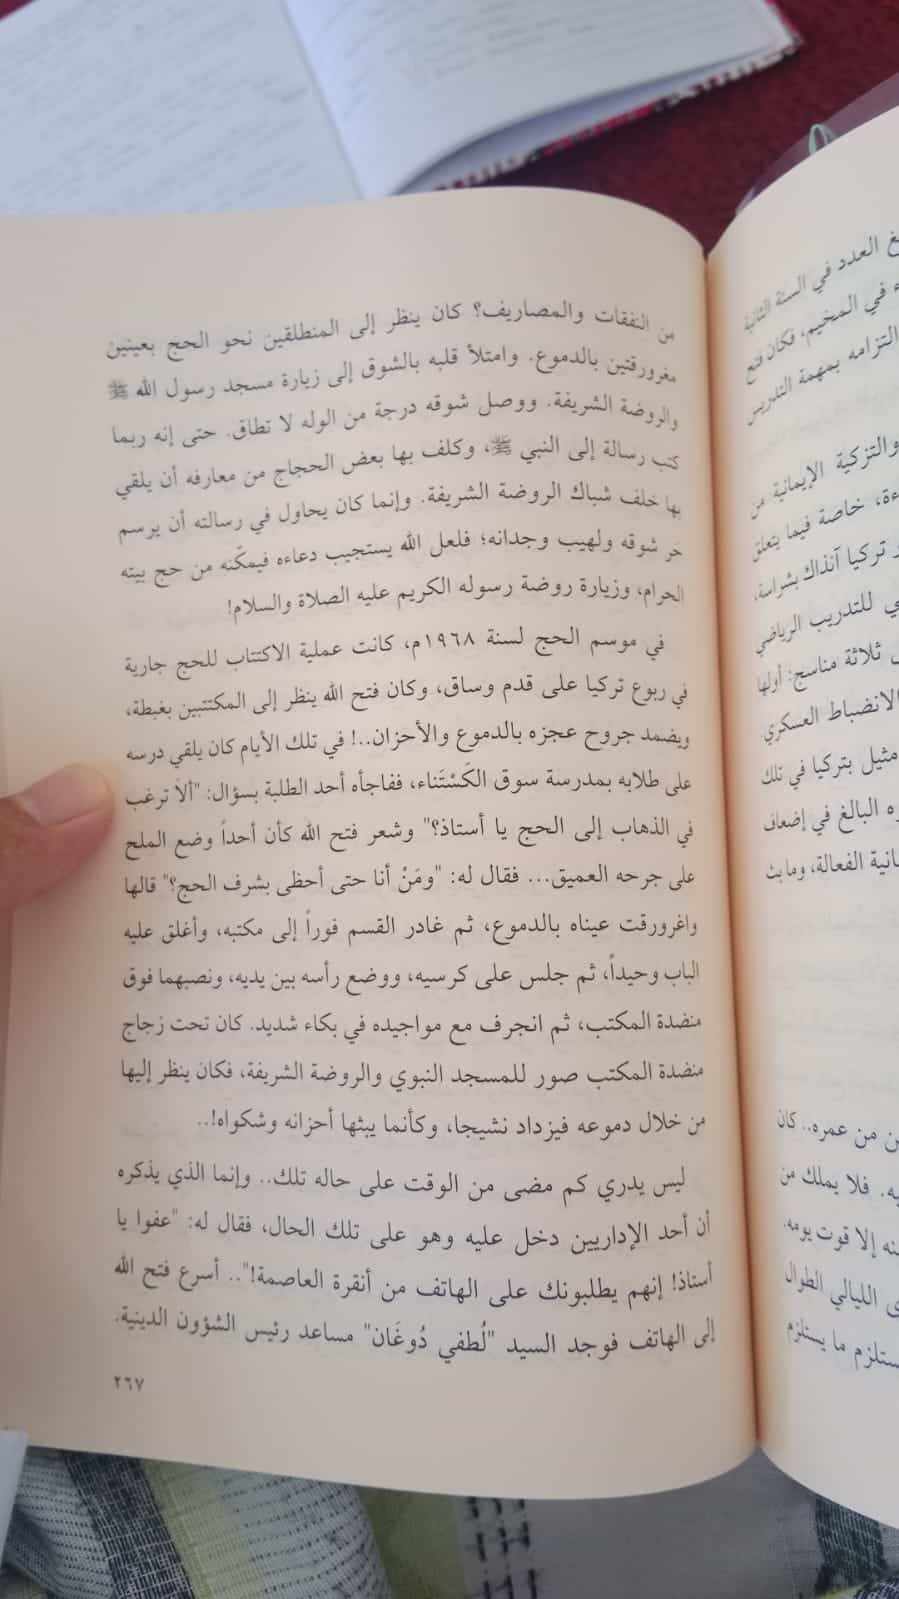 من النفقات والمصاريف؟ كان ينظر إلى المنطلقين نحو الحج بعينين
مغرورقتين بالدموع. وامتلأ قلبه بالشوق إلى زيارة مسجد رسول الله ﷺ
والروضة الشريفة. ووصل شوقه درجة من الوله لا تطاق. حتى إنه ربما
كتب رسالة إلى النبي ﷺ، وكلف بها بعض الحجاج من معارفه أن يلقي
بها خلف شباك الروضة الشريفة. وإنما كان يحاول في رسالته أن يرسم
حَر شوقه ولهيب وجدانه؛ فلعل الله يستجيب دعاءه فيمكّنه من حج بيته
الحرام، وزيارة روضة رسوله الكريم عليه الصلاة والسلام!
في موسم الحج لسنة ١٩٦٨م، كانت عملية الاكتتاب للحج جارية
في ربوع تركيا على قدم وساق، وكان فتح الله ينظر إلى المكتتبين بغبطة،
ويضمد جروح عجزه بالدموع والأحزان..! في تلك الأيام كان يلقي درسه
على طلابه بمدرسة سوق الكَسْتَناء، ففاجأه أحد الطلبة بسؤال: "ألا ترغب
في الذهاب إلى الحج يا أستاذ؟" وشعر فتح الله كأن أحداً وضع الملح
على جرحه العميق... فقال له: "ومَنْ أنا حتى أحظى بشرف الحج؟" قالها
واغرورقت عيناه بالدموع، ثم غادر القسم فوراً إلى مكتبه، وأغلق عليه
الباب وحيداً، ثم جلس على كرسيه، ووضع رأسه بين يديه، ونصبهما فوق
منضدة المكتب، ثم انجرف مع مواجيده في بكاء شديد. كان تحت زجاج
منضدة المكتب صور للمسجد النبوي والروضة الشريفة، فكان ينظر إليها
من خلال دموعه فيزداد نشيجا، وكأنما يبثها أحزانه وشكواه!..
ليس يدري كم مضى من الوقت على حاله تلك.. وإنما الذي يذكره
أن أحد الإداريين دخل عليه وهو على تلك الحال، فقال له: "عفوا يا
أستاذ! إنهم يطلبونك على الهاتف من أنقرة العاصمة!".. أسرع فتح الله
إلى الهاتف فوجد السيد "لُطفي دُوغَان" مساعد رئيس الشؤون الدينية.
٢٦٧
العدد في السنة الثانية
في المخيم، فكان فتح
التزامه بمهمة التدريس
والتزكية الإيمانية من
خاصة فيما يتعلق
تركيا آنذاك بشراسة،
للتدريب الرياضي
ثلاثة مناسج: أولها
الانضباط العسكري.
مثيل بتركيا في تلك
البالغ في إضعاف
الفعالة، وما بث
من عمره.. كان
فلا يملك من
إلا قوت يومه.
الليالي الطوال
ما يستلزم